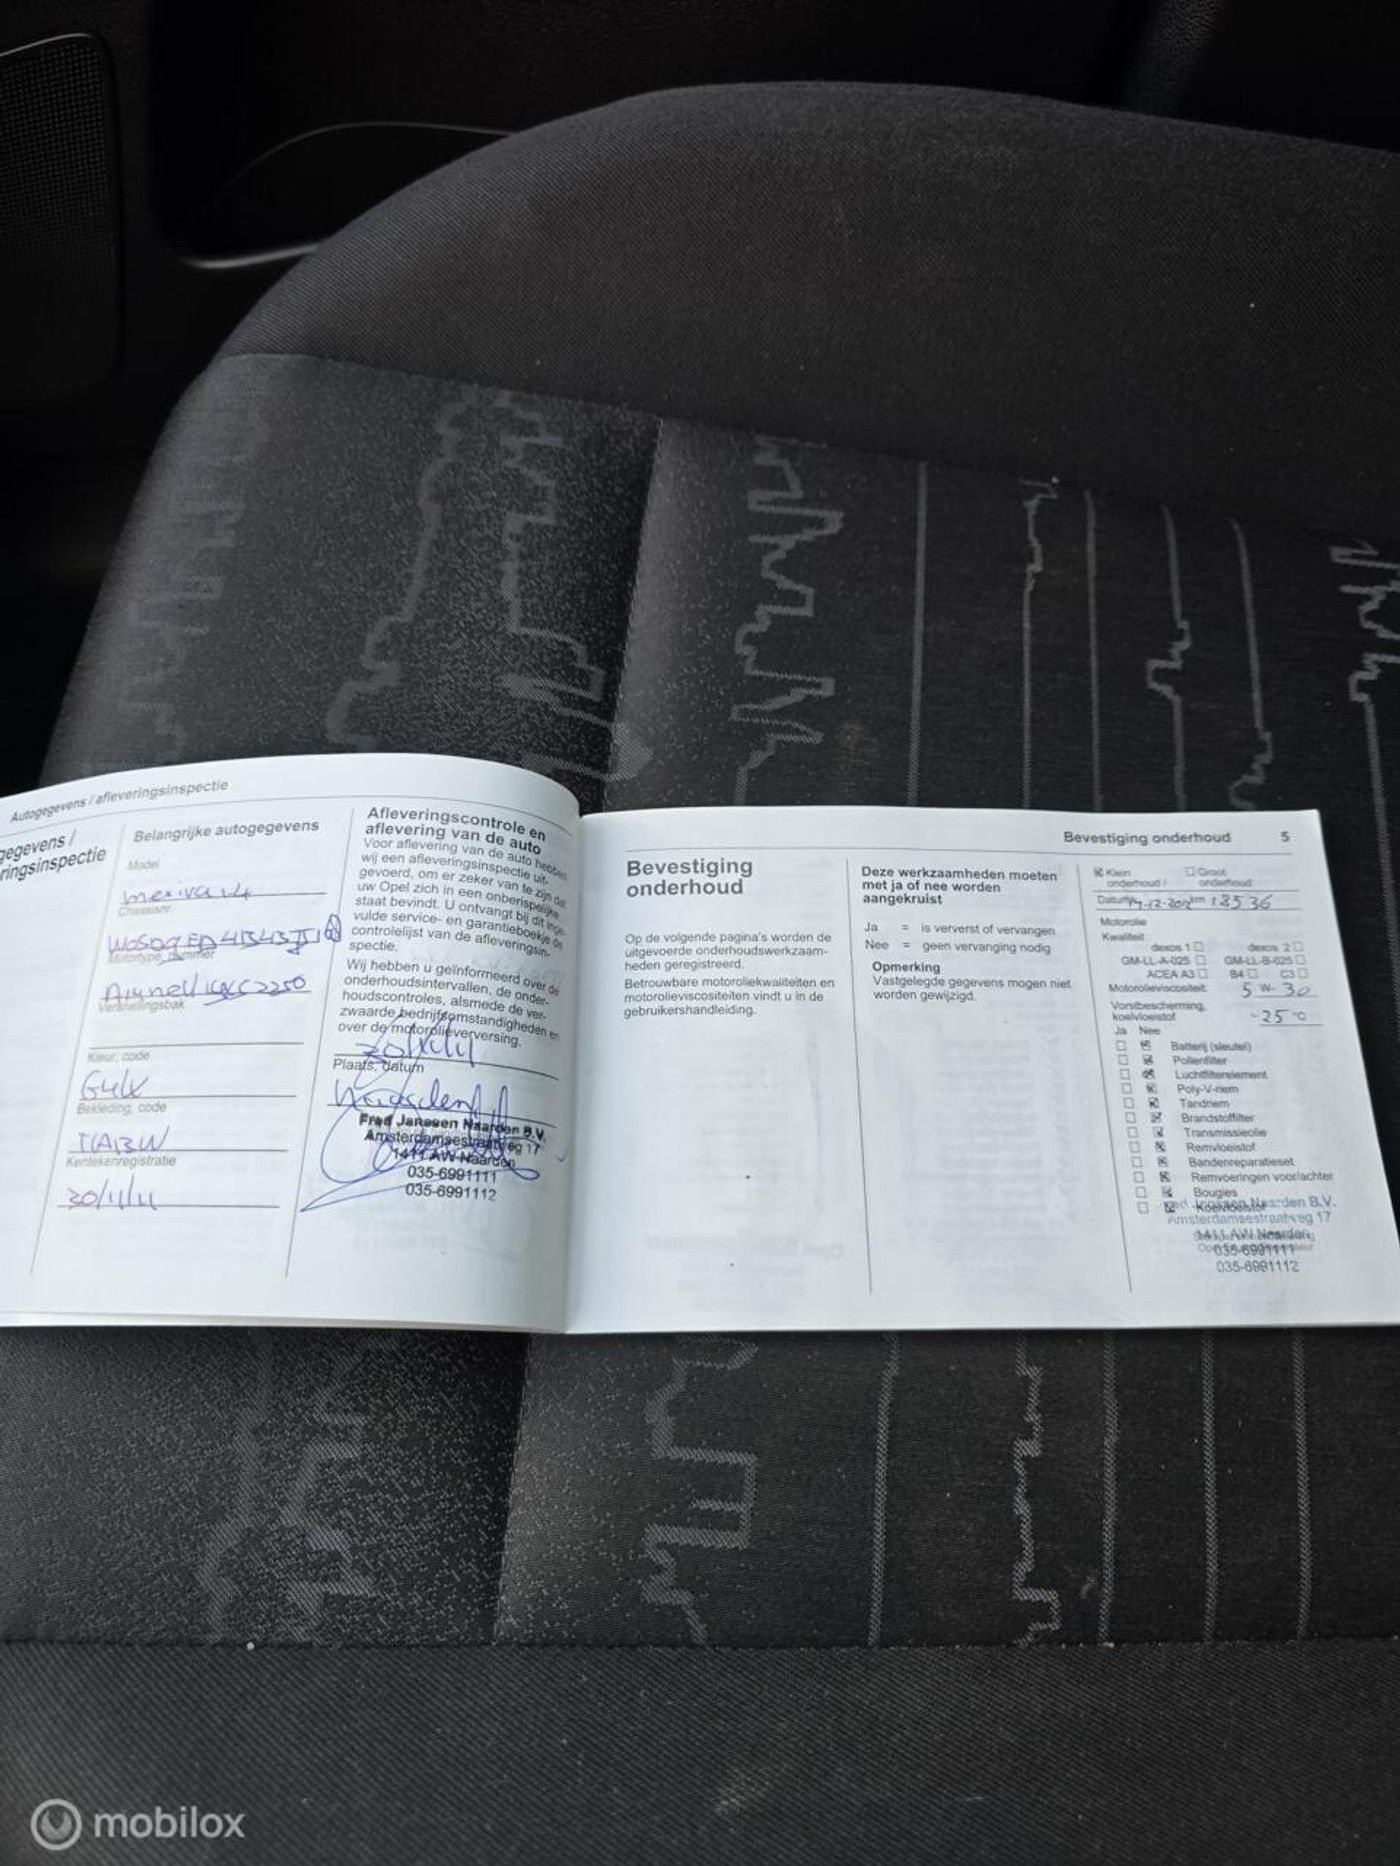 Autogegevens / afleveringsinspectie
gegevens /
ringsinspectie
Belangrijke autogegevens
Model
meriva 1.4
Chassisnr.
Motortype, nummer
Versnellingsbak
Kleur, code
G4X
Bekleding, code
TABW
Kentekenregistratie
30/11/11
Afleveringscontrole en
aflevering van de auto
Voor aflevering van de auto hebben
wij een afleveringsinspectie uit-
gevoerd, om er zeker van te zijn dat
uw Opel zich in een onberispelijke
staat bevindt. U ontvangt bij dit inge-
vulde service- en garantieboekje de
controlelijst van de afleveringsin-
spectie.
Wij hebben u geïnformeerd over de
onderhoudsintervallen, de onder-
houdscontroles, alsmede de ver-
zwaarde bedrijfsomstandigheden en
over de motorolieverversing.
30/11/11
Plaats, datum
Naarden
Fred Janssen Naarden B.V.
Amsterdamsestraatweg 17
1411 AW Naarden
035-6991111
035-6991112
Bevestiging onderhoud 5
Bevestiging
onderhoud
Op de volgende pagina's worden de
uitgevoerde onderhoudswerkzaam-
heden geregistreerd.
Betrouwbare motoroliekwaliteiten en
motorolieviscositeiten vindt u in de
gebruikershandleiding.
Deze werkzaamheden moeten
met ja of nee worden
aangekruist
Ja = is ververst of vervangen
Nee = geen vervanging nodig
Opmerking
Vastgelegde gegevens mogen niet
worden gewijzigd.
Klein Groot
onderhoud / onderhoud
Datum -12-2012 km 18536
Motorolie
Kwaliteit
dexos 1 dexos 2
GM-LL-A-025 GM-LL-B-025
ACEA A3 B4 C3
Motorolieviscositeit: 5 W- 30
Vorstbescherming,
koelvloeistof -25 °C
Ja Nee
Batterij (sleutel)
Pollenfilter
Luchtfilterelement
Poly-V-riem
Tandriem
Brandstoffilter
Transmissieolie
Remvloeistof
Bandenreparatieset
Remvoeringen voor/achter
Bougies
Koelvloeistof
Fred Janssen Naarden B.V.
Amsterdamsestraatweg 17
1411 AW Naarden
035-6991111
035-6991112
mobilox